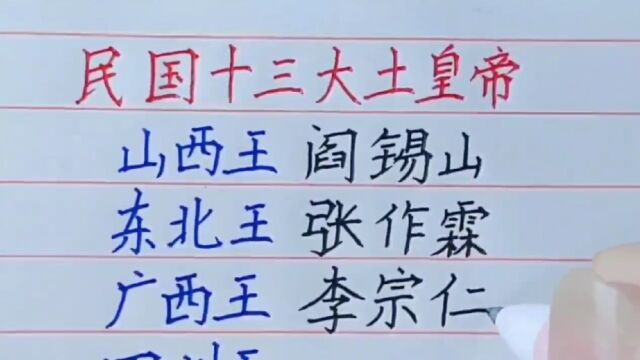 民国十三大土皇帝
山西王 阎锡山
东北王 张作霖
广西王 李宗仁